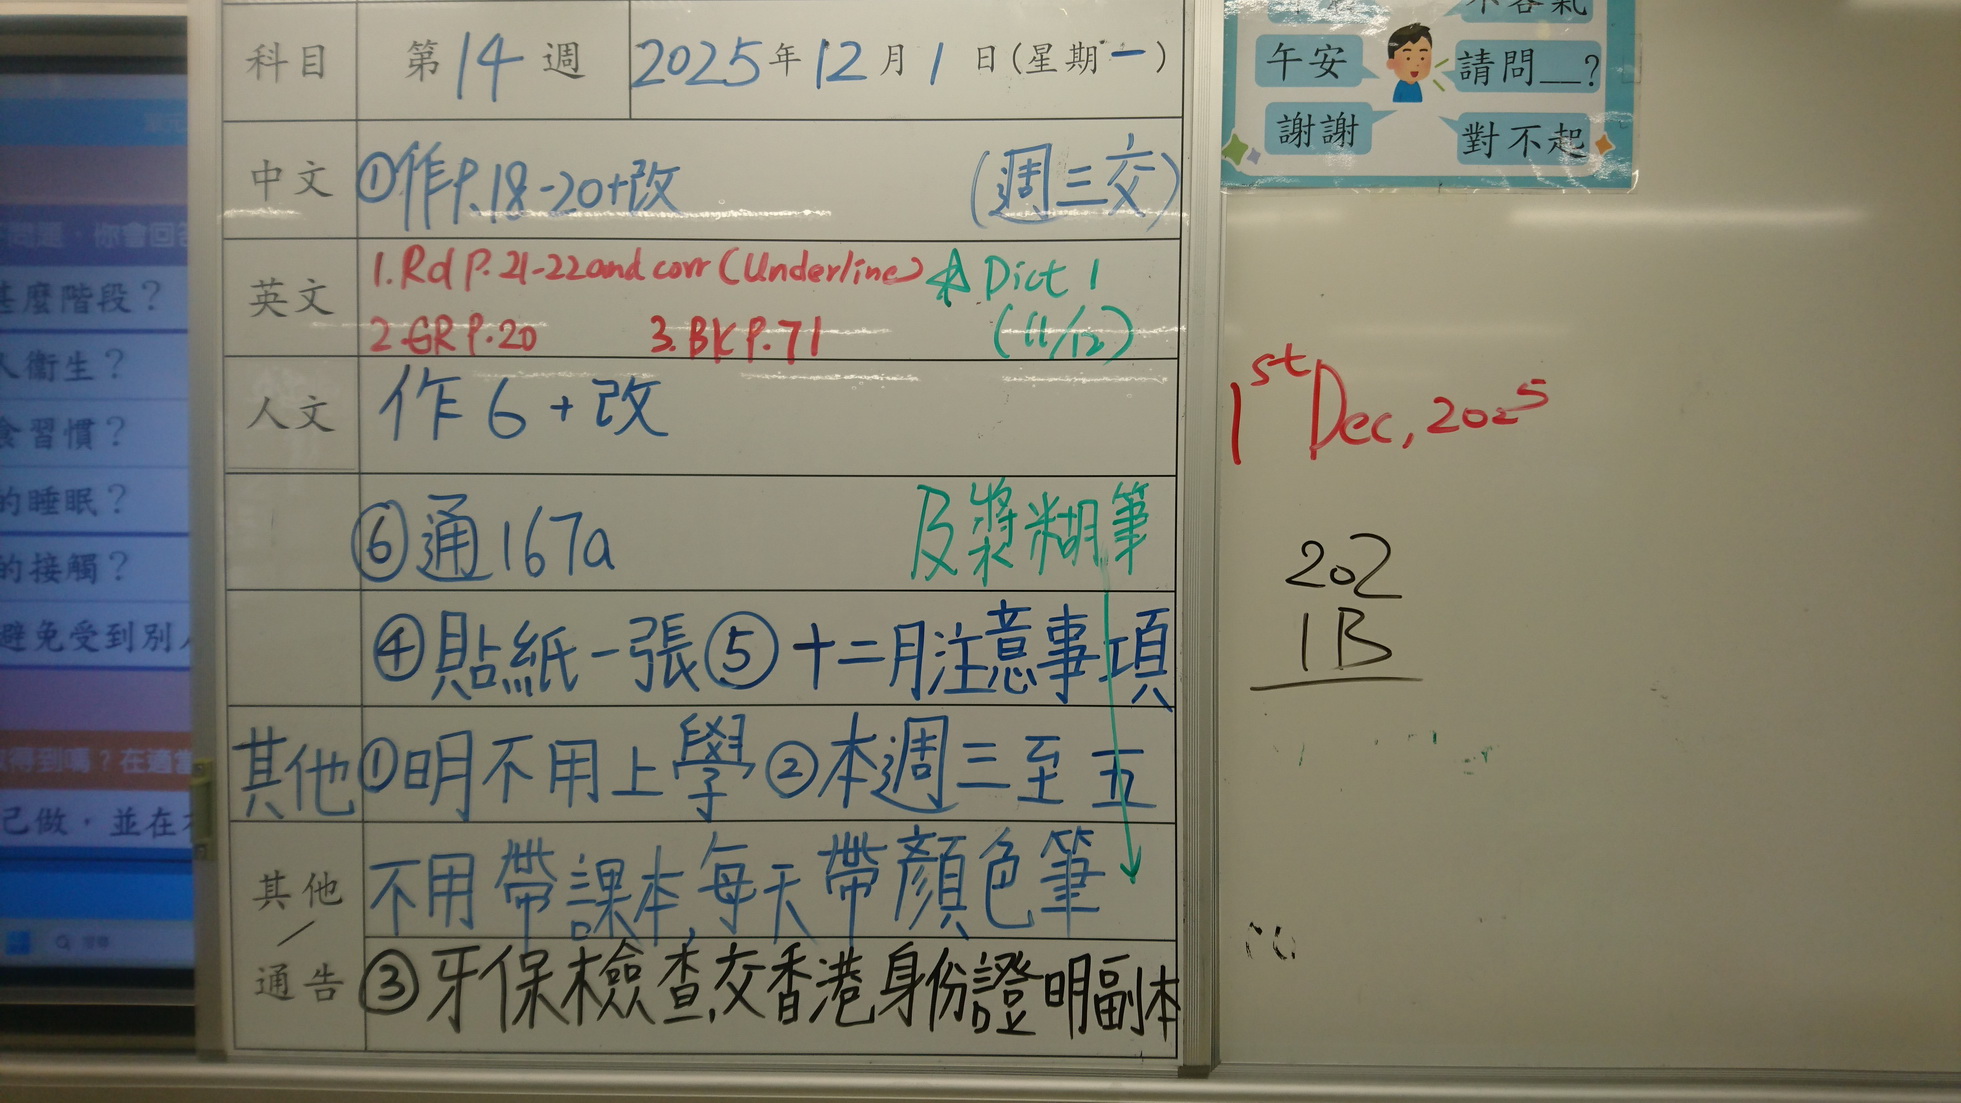 科目 第14週 2025年12月1日(星期一)
中文 ①作P.18-20+改 (週三交)
英文 1.Rd P.21-22 and corr (Underline) ☆ Dict 1
2.GR P.20 3.BK P.71 (11/12)
人文 作6+改
⑥通167a 及漿糊筆
④貼紙一張⑤十二月注意事項
其他 ①明不用上學②本週三至五
不用帶課本,每天帶顏色筆
其他/通告
③牙保檢查,交香港身份證明副本
午安
請問__?
謝謝
對不起
1st Dec, 2025
202
1B
甚麼階段?
人衞生?
食習慣?
的睡眠?
的接觸?
避免受到別人
得到嗎?在適當
己做,並在
問題,你會回答